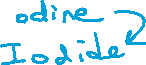 odine
Iodide